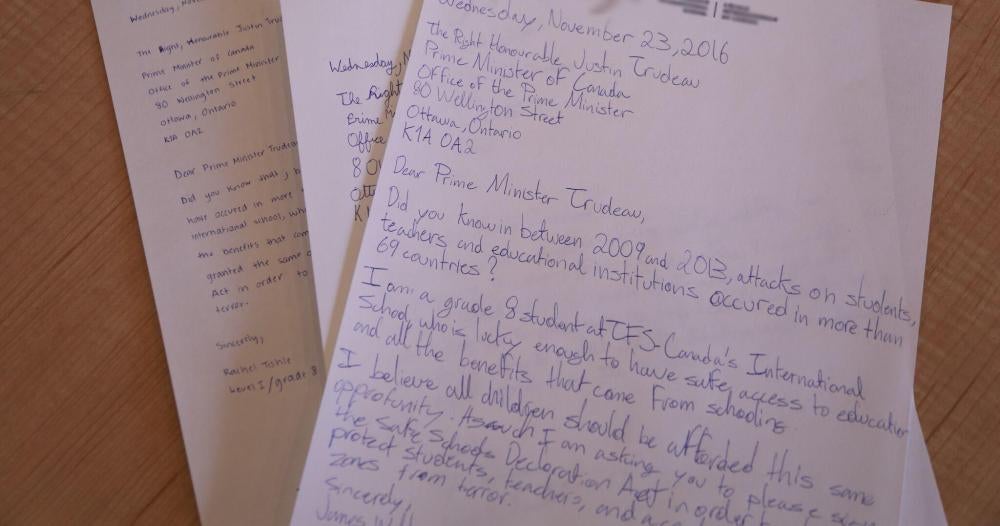 Wednesday,
The Right, Honourable Justin
Prime Minister of Canada
Office of the Prime Minister
80 Wellington Street
Ottawa, Ontario
K1A 0A2
Dear Prime Minister Trudeau
Did you know that
have occured in more
international school,
the benefits that
granted the same
Act in order to
terror.
Sincerely,
Rachel
Level I/grade 8
Wednesday,
The Right
Prime
Office
80
Wednesday, November 23, 2016
The Right Honourable Justin Trudeau
Prime Minister of Canada
Office of the Prime Minister
80 Wellington Street
Ottawa, Ontario
K1A 0A2
Dear Prime Minister Trudeau,
Did you know in between 2009 and 2013, attacks on students,
teachers and educational institutions occured in more than
69 countries?
I am a grade 8 student at TFS-Canada's International
School, who is lucky enough to have safe access to education
and all the benefits that come from schooling.
I believe all children should be afforded this same
opportunity. As such I am asking you to please
the Safe Schools Declaration Act in order
protect students, teachers, and
zones from terror.
Sincerely,
James